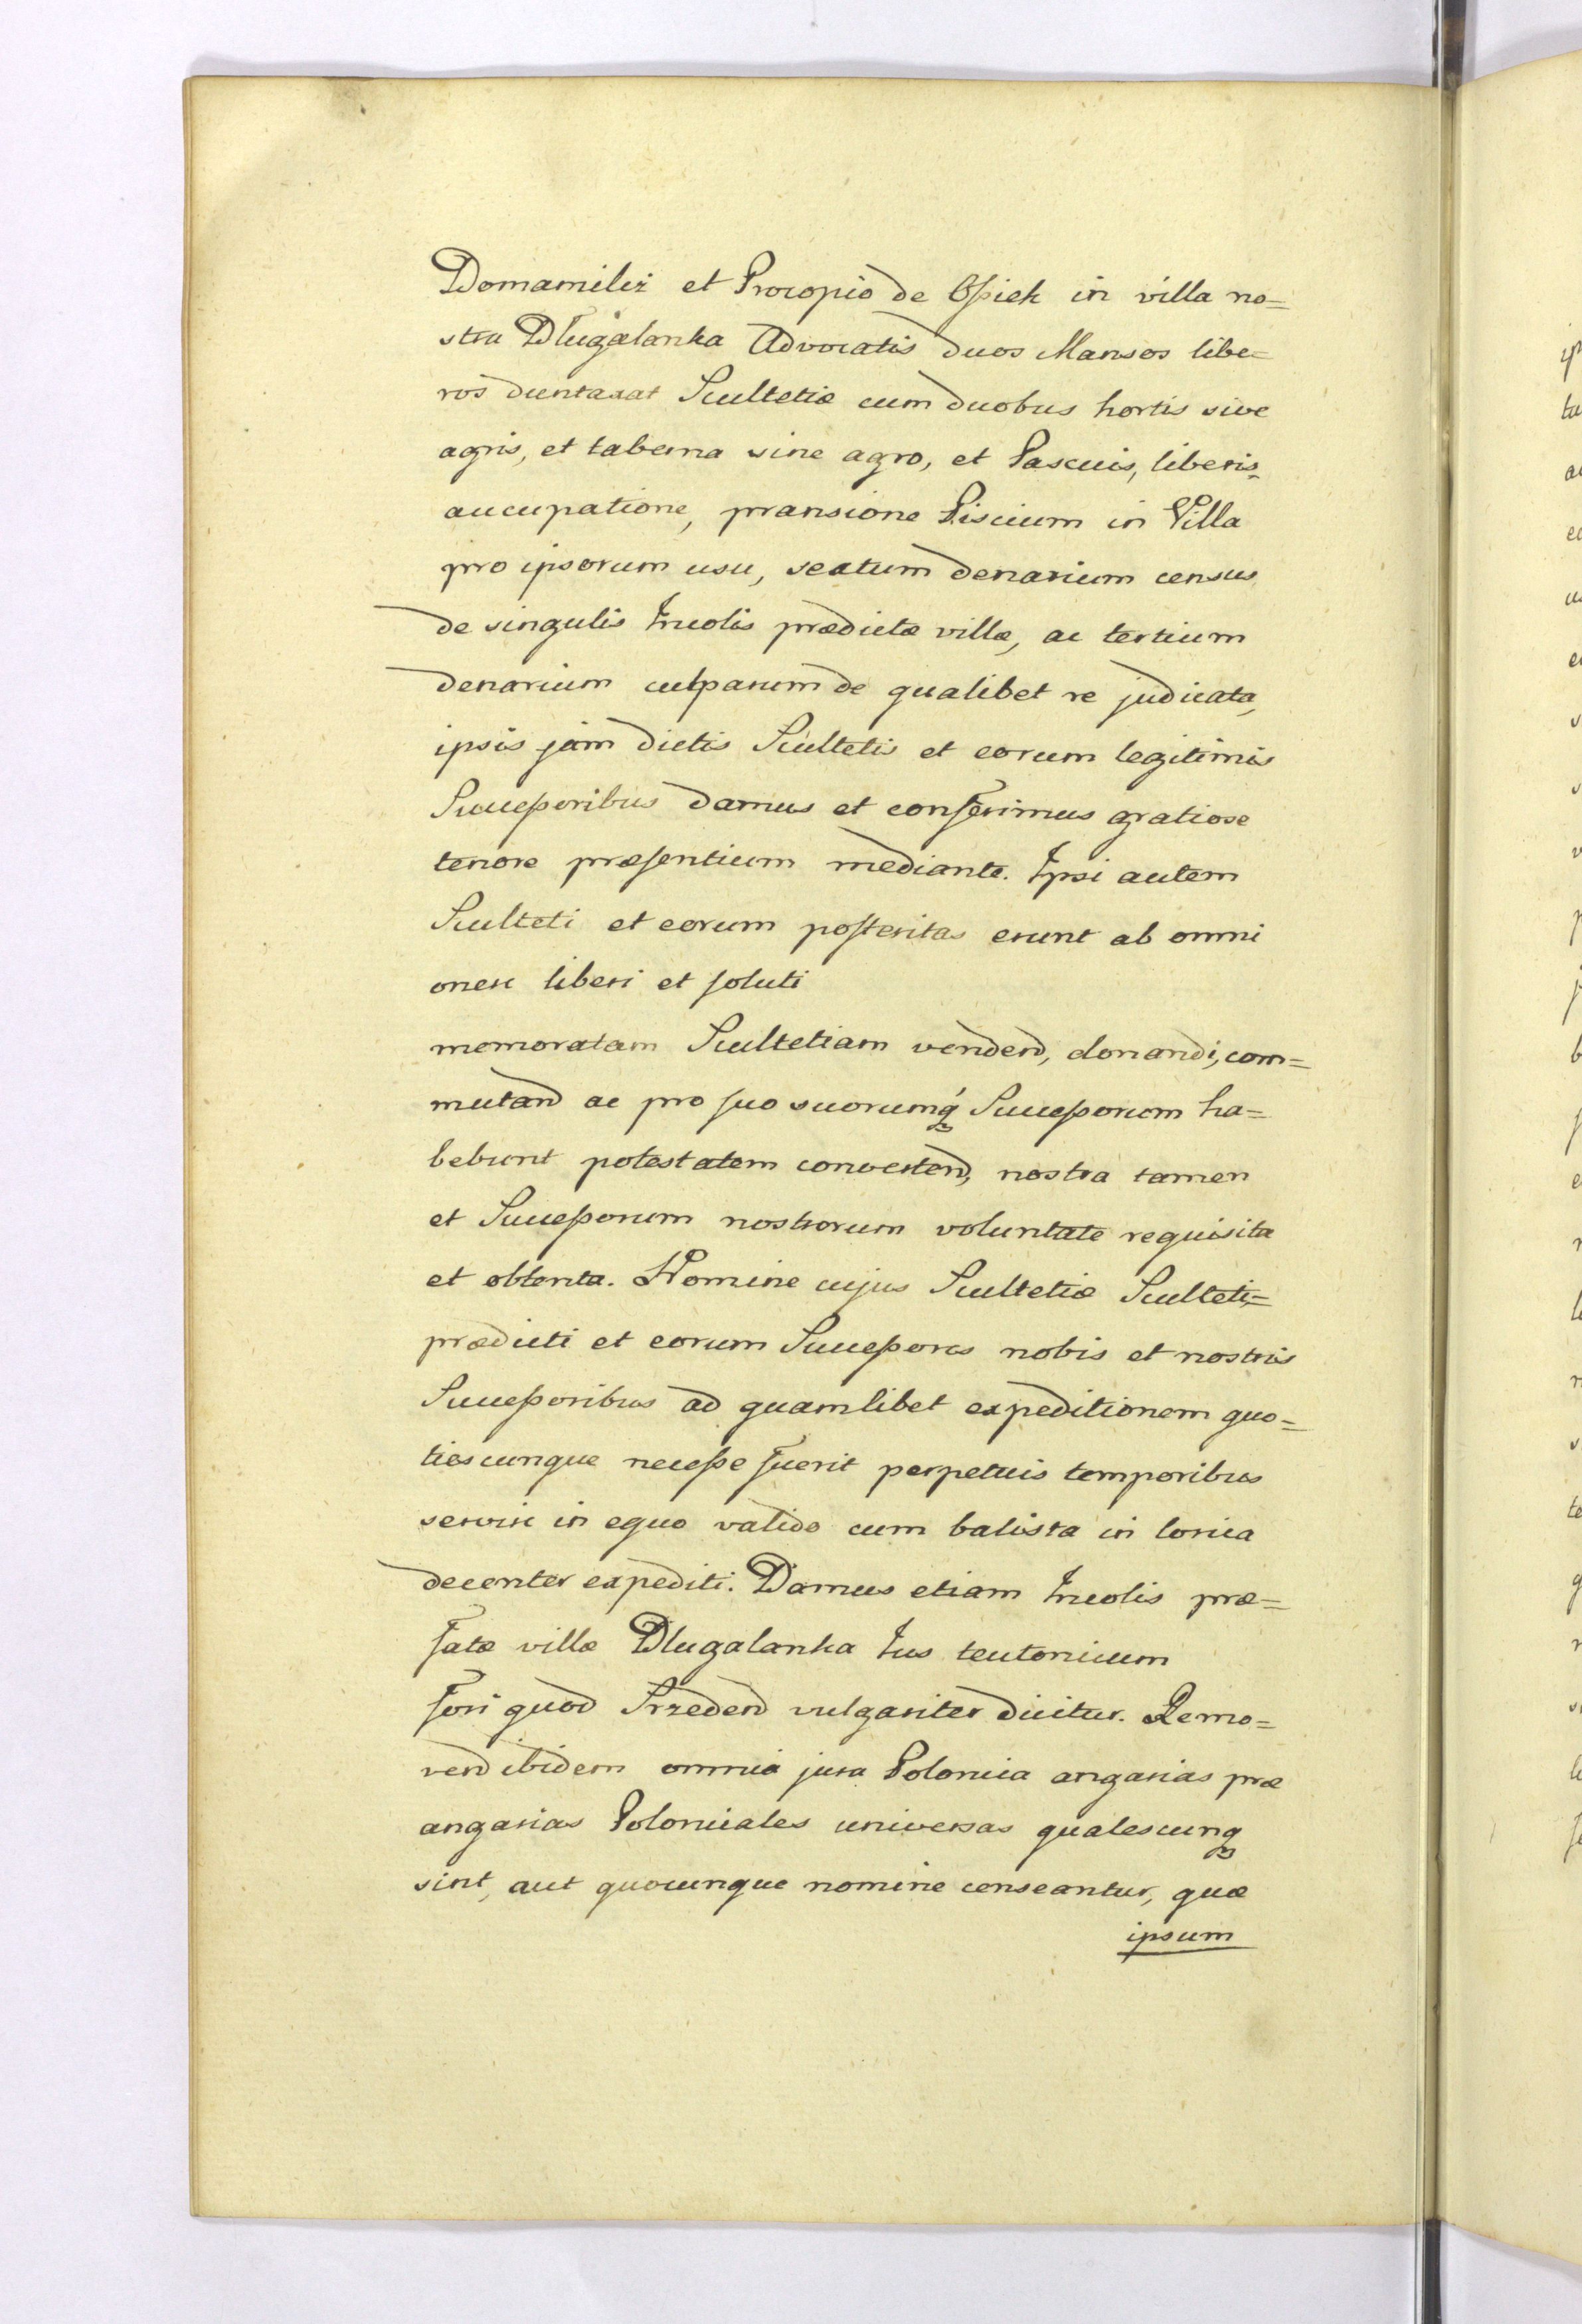 Domamilei et Procopio de Ossiek in villa no=
stra Dlugalanka Advocatis duos Mansos libe=
ros duntaxat Scultetiæ cum duobus hortis sive
agris, et taberna sine agro, et Pascuis, liberis
aucupatione, pransione Piscium in Villa
pro ipsorum usu, sextum denarium census
de singulis Incolis prædictæ villæ, ac tertium
denarium culparum de qualibet re judicata,
ipsis jam dictis Scultetis et eorum legitimis
Successoribus damus et conferimus gratiose
tenore præsentium mediante. Ipsi autem
Sculteti et eorum posteritas erunt ab omni
onere liberi et soluti
memoratam Scultetiam vendend, donandi, com=
mutand ac pro suo suorumq Successorum ha=
bebunt potestatem convertend, nostra tamen
et Successorum nostrorum voluntate requisita
et obtenta. Nomine cujus Scultetiæ Sculteti=
prædicti et eorum Successores nobis et nostris
Successoribus ad quamlibet expeditionem quo=
tiescunque necesse fuerit perpetuis temporibus
servire in equo valido cum balista in lorica
decenter expediti. Damus etiam Incolis præ=
fatæ villæ Dlugalanka Jus teutonicum
fori quod Srzedend vulgariter dicitur. Remo=
vend ibidem omnia jura Polonica angarias præ
angarias Polonicales universas qualescunq
sint, aut quocunque nomine censeantur, quæ
ipsum